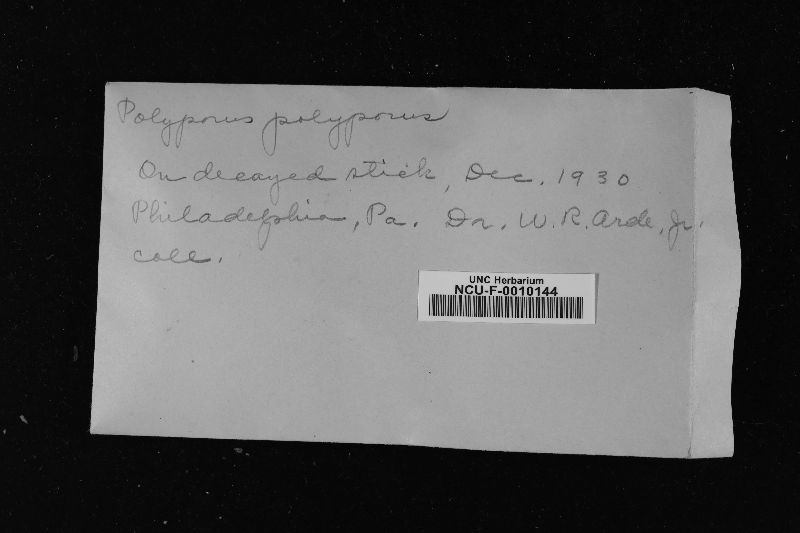 Polyporus polyporus
On decayed stick, Dec. 1930
Philadelphia, Pa. Dr. W. R. Arde, Jr.
coll.
UNC Herbarium
NCU-F-0010144